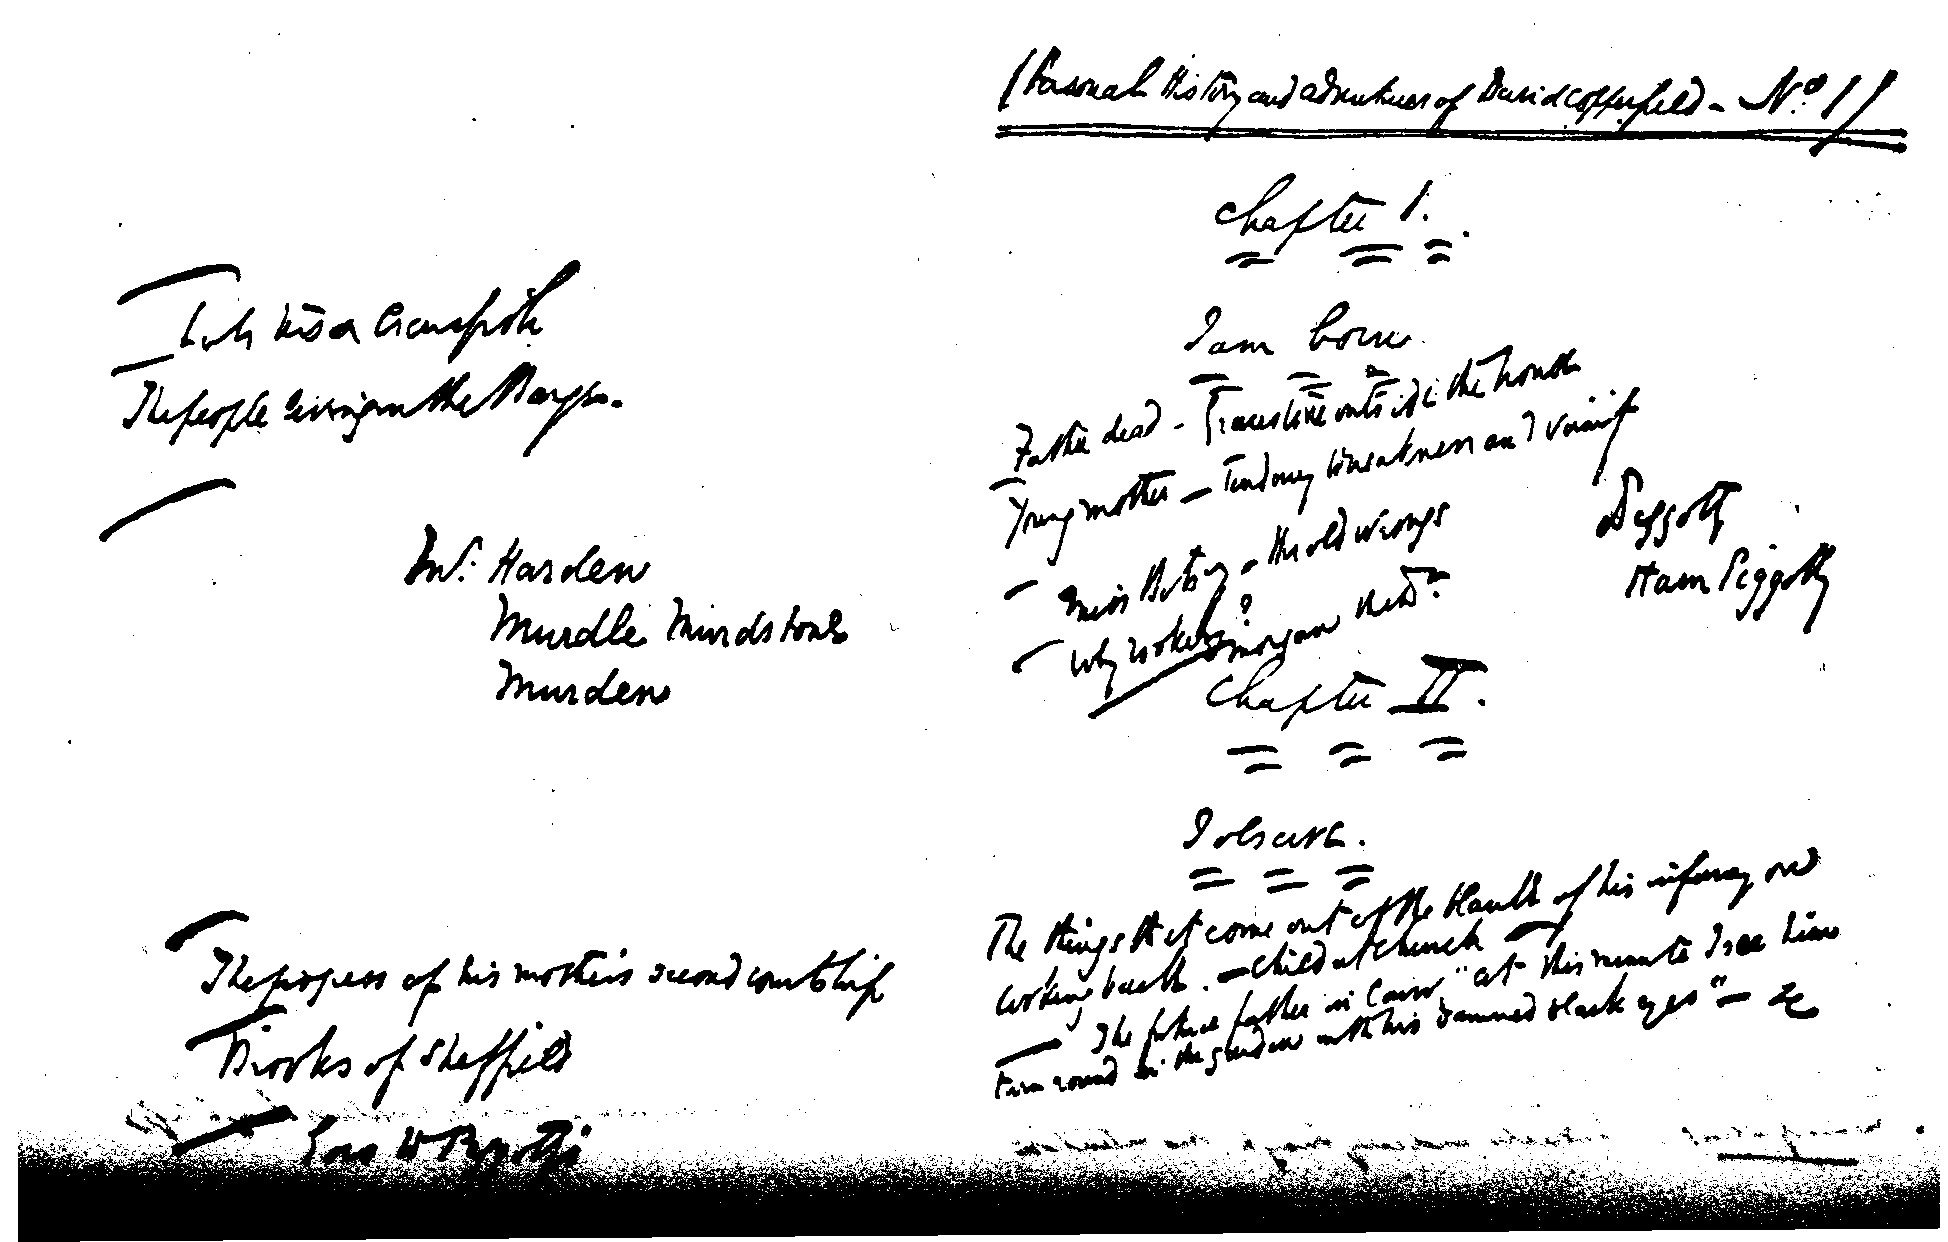 (Personal History and adventures of David Copperfield - No. 1)
Chapter I.
I am born
Father dead - Gravestone outside the house
Young mother - Tendency to weakness and vanity
Miss Betsey - her old wrongs
Why Rookery?
Peggotty
Ham Peggotty
Chapter II.
I observe.
The things that come out of the blank of his infancy on
looking back. - Child at church
The future father in law "at this minute I see him
turn round in the garden with his damned black eyes" - &c
The people living in the Barge.
Mr. Harden
Murdle Murdstone
Murden
The progress of his mother's second courtship
Brooks of Sheffield